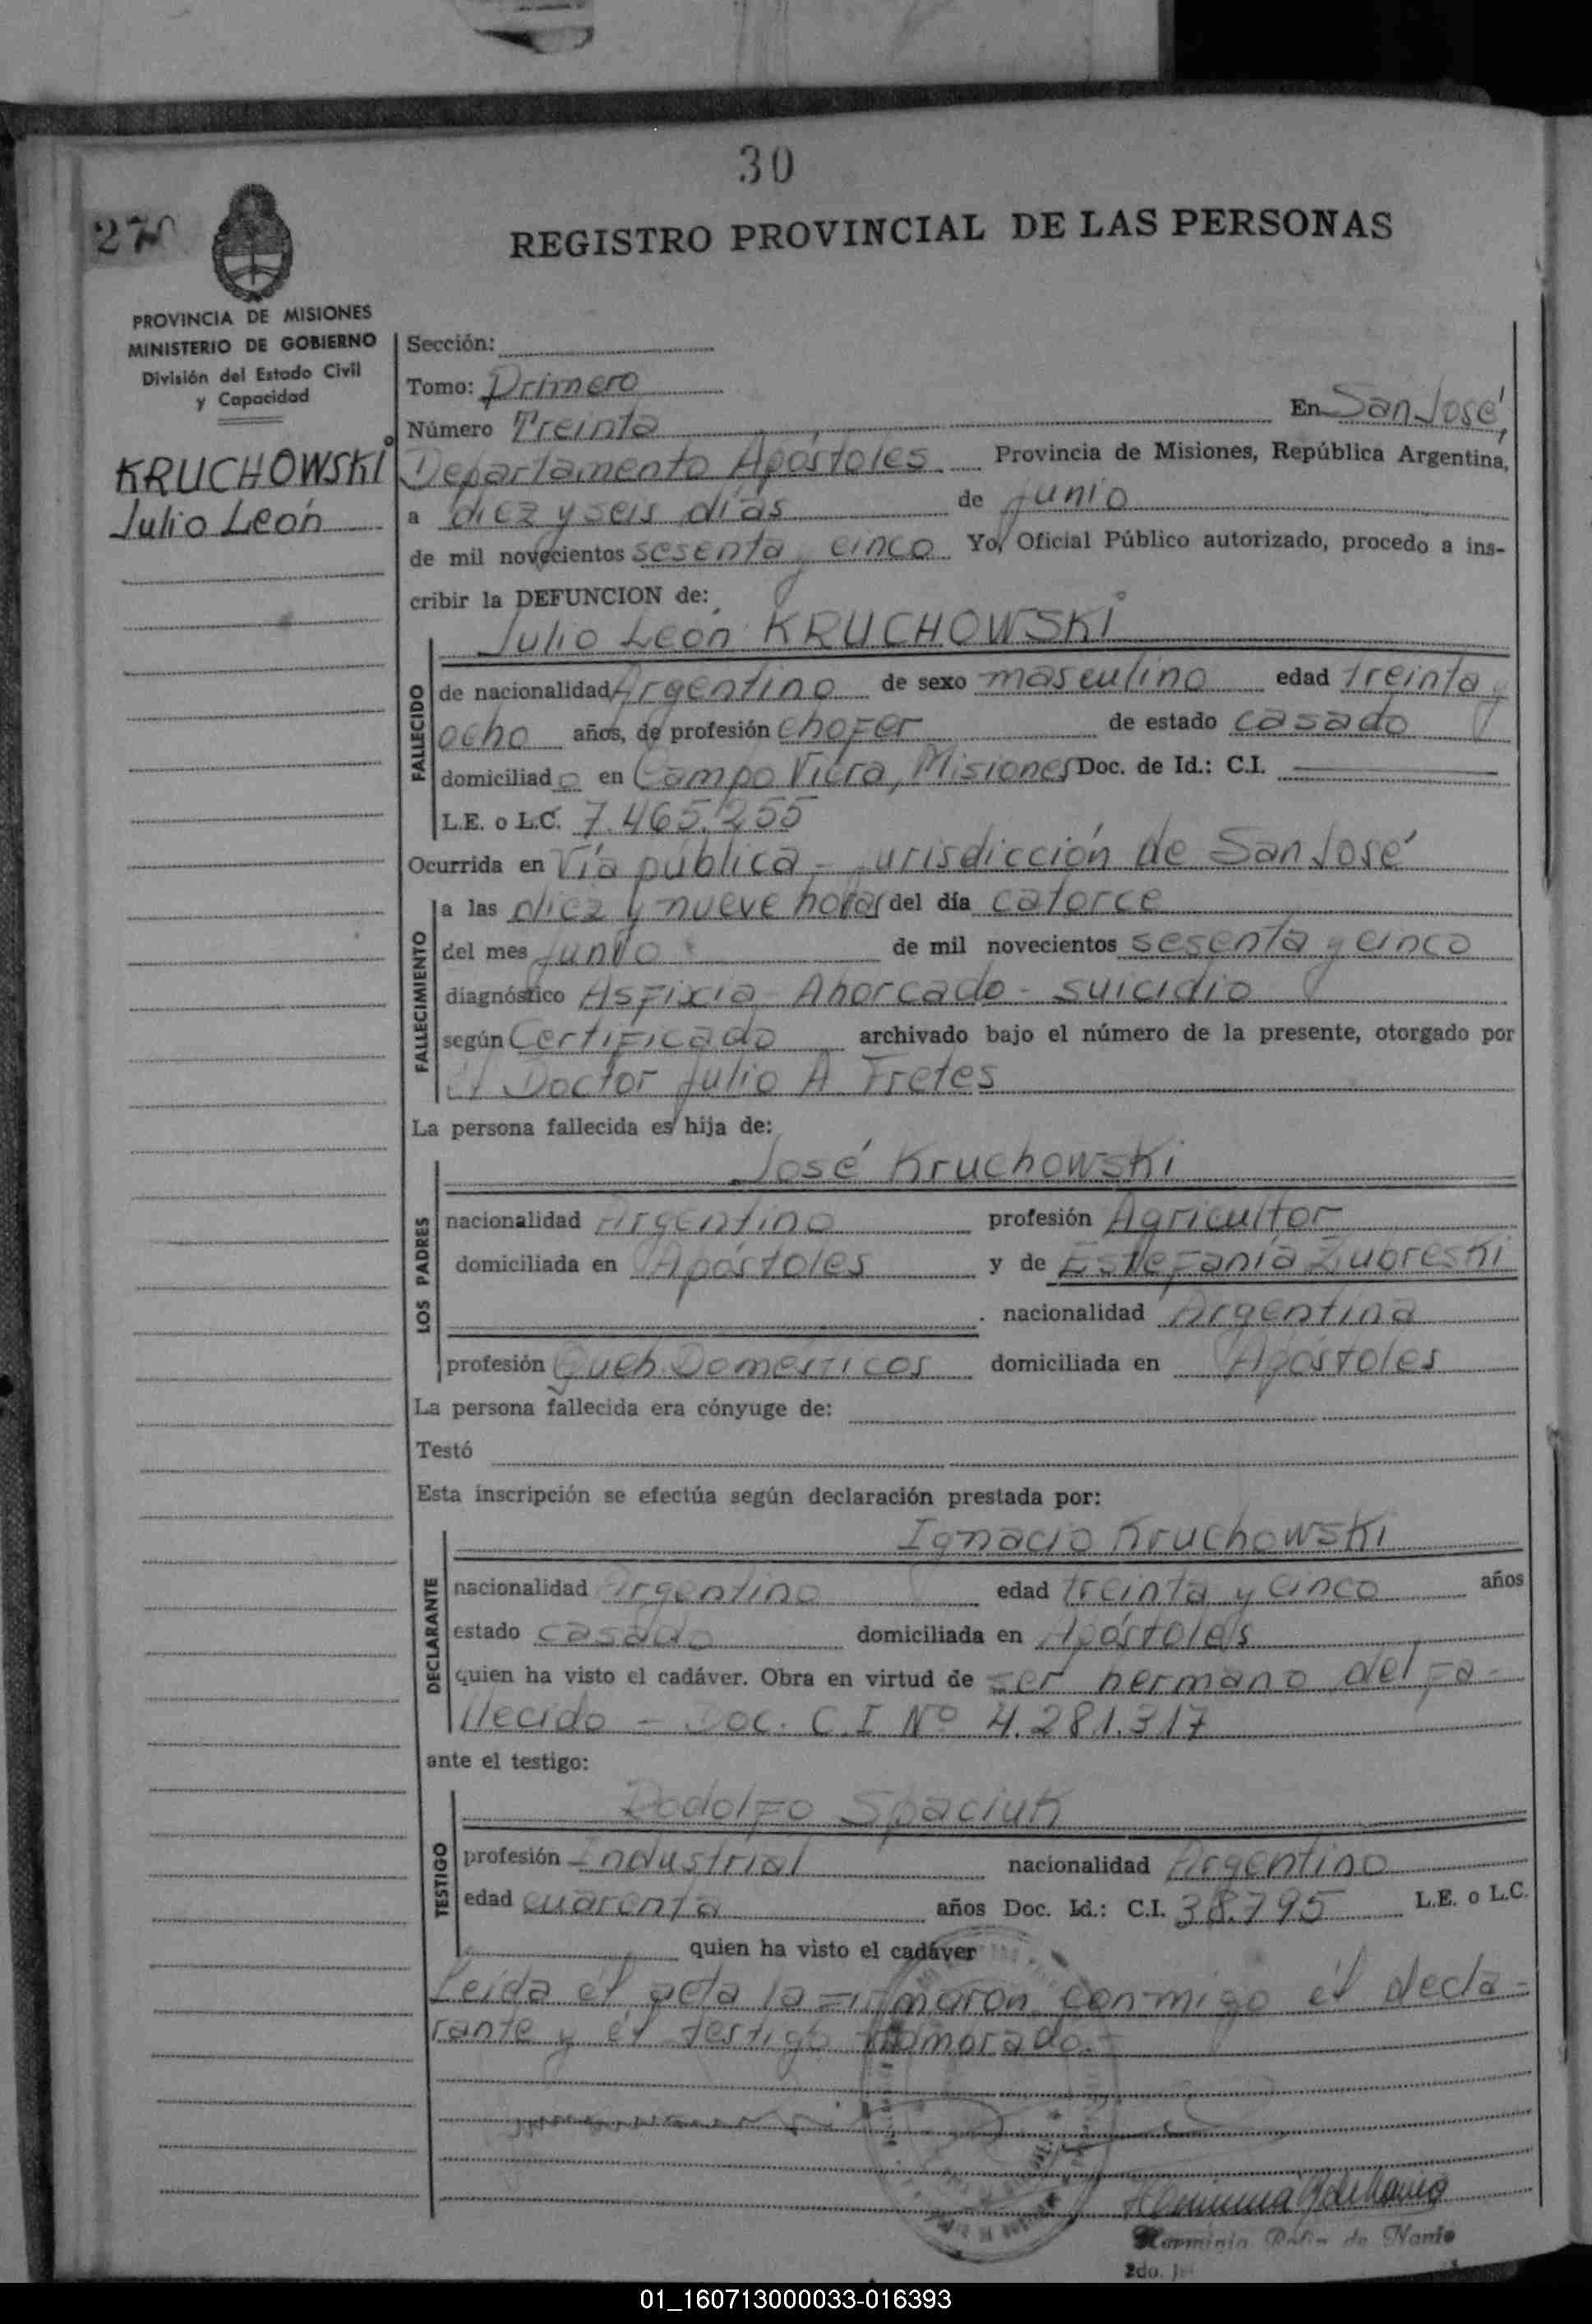 30
REGISTRO PROVINCIAL DE LAS PERSONAS
PROVINCIA DE MISIONES
MINISTERIO DE GOBIERNO
División del Estado Civil
y Capacidad
KRUCHOWSKI
Julio León
Sección:
Tomo: Primero
En San José,
Número Treinta
Departamento Apóstoles Provincia de Misiones, República Argentina,
a diez y seis días de junio
de mil novecientos sesenta y cinco Yo, Oficial Público autorizado, procedo a ins-
cribir la DEFUNCION de:
Julio León KRUCHOWSKI
FALLECIDO
de nacionalidad Argentino de sexo masculino edad treinta y
ocho años, de profesión chofer de estado casado
domiciliado en Campo Viera, Misiones Doc. de Id.: C.I.
L.E. o L.C. 7.465.255
Ocurrida en Vía pública - jurisdicción de San José
FALLECIMIENTO
a las diez y nueve horas del día catorce
del mes junio de mil novecientos sesenta y cinco
diagnóstico Asfixia - Ahorcado - suicidio
según Certificado archivado bajo el número de la presente, otorgado por
el Doctor Julio A Fretes
La persona fallecida es hija de:
José Kruchowski
LOS PADRES
nacionalidad Argentino profesión Agricultor
domiciliada en Apóstoles y de Estefanía Zubreski
nacionalidad Argentina
profesión Queh. Domésticos domiciliada en Apóstoles
La persona fallecida era cónyuge de:
Testó
Esta inscripción se efectúa según declaración prestada por:
Ignacio Kruchowski
DECLARANTE
nacionalidad Argentino edad treinta y cinco años
estado casado domiciliada en Apóstoles
quien ha visto el cadáver. Obra en virtud de ser hermano del fa-
llecido - Doc. C.I Nº 4.281.317
ante el testigo:
Rodolfo Spaciuk
TESTIGO
profesión Industrial nacionalidad Argentino
edad cuarenta años Doc. Id.: C.I. 38.795 L.E. o L.C.
quien ha visto el cadáver
Leída el acta la firmaron conmigo el decla-
rante y el testigo
Herminia de
2do.
01_160713000033-016393